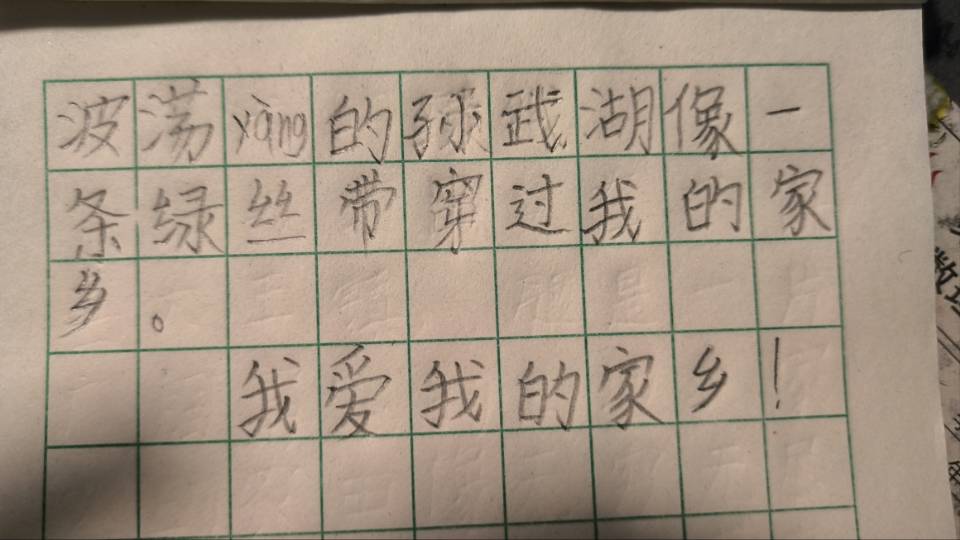 波荡yàng的孙武湖像一
条绿丝带穿过我的家
乡。
我爱我的家乡！